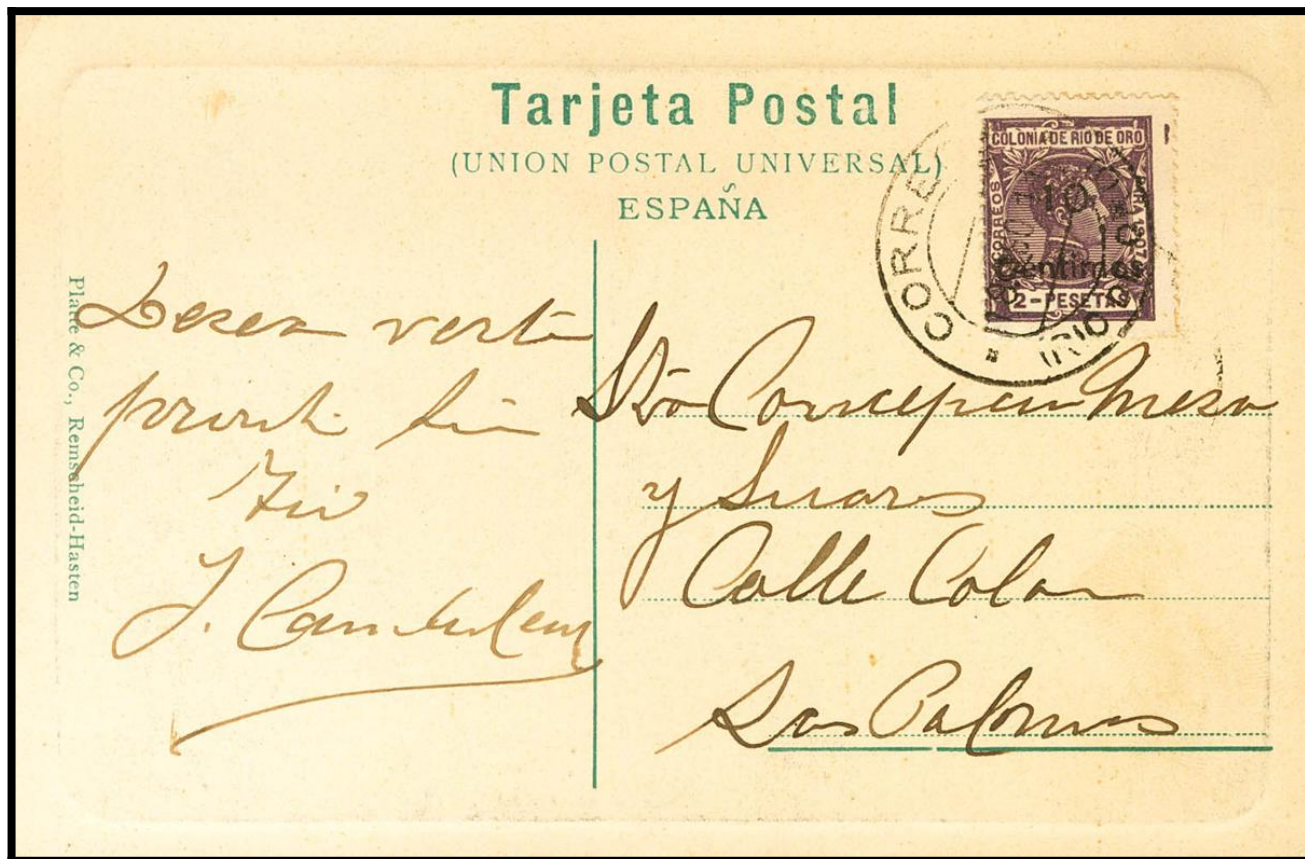 Tarjeta Postal
(UNION POSTAL UNIVERSAL)
ESPAÑA
COLONIA DE RIO DE ORO
CORREOS
PARA 1907
10
Céntimos
2-PESETAS
CORREOS
RIO DE ORO
Platte & Co., Remscheid-Hasten
Desea verte
pronto tu
Tio
J.
Sta Concepcion Mesa
y Suares
Calle Colon
Las Palmas